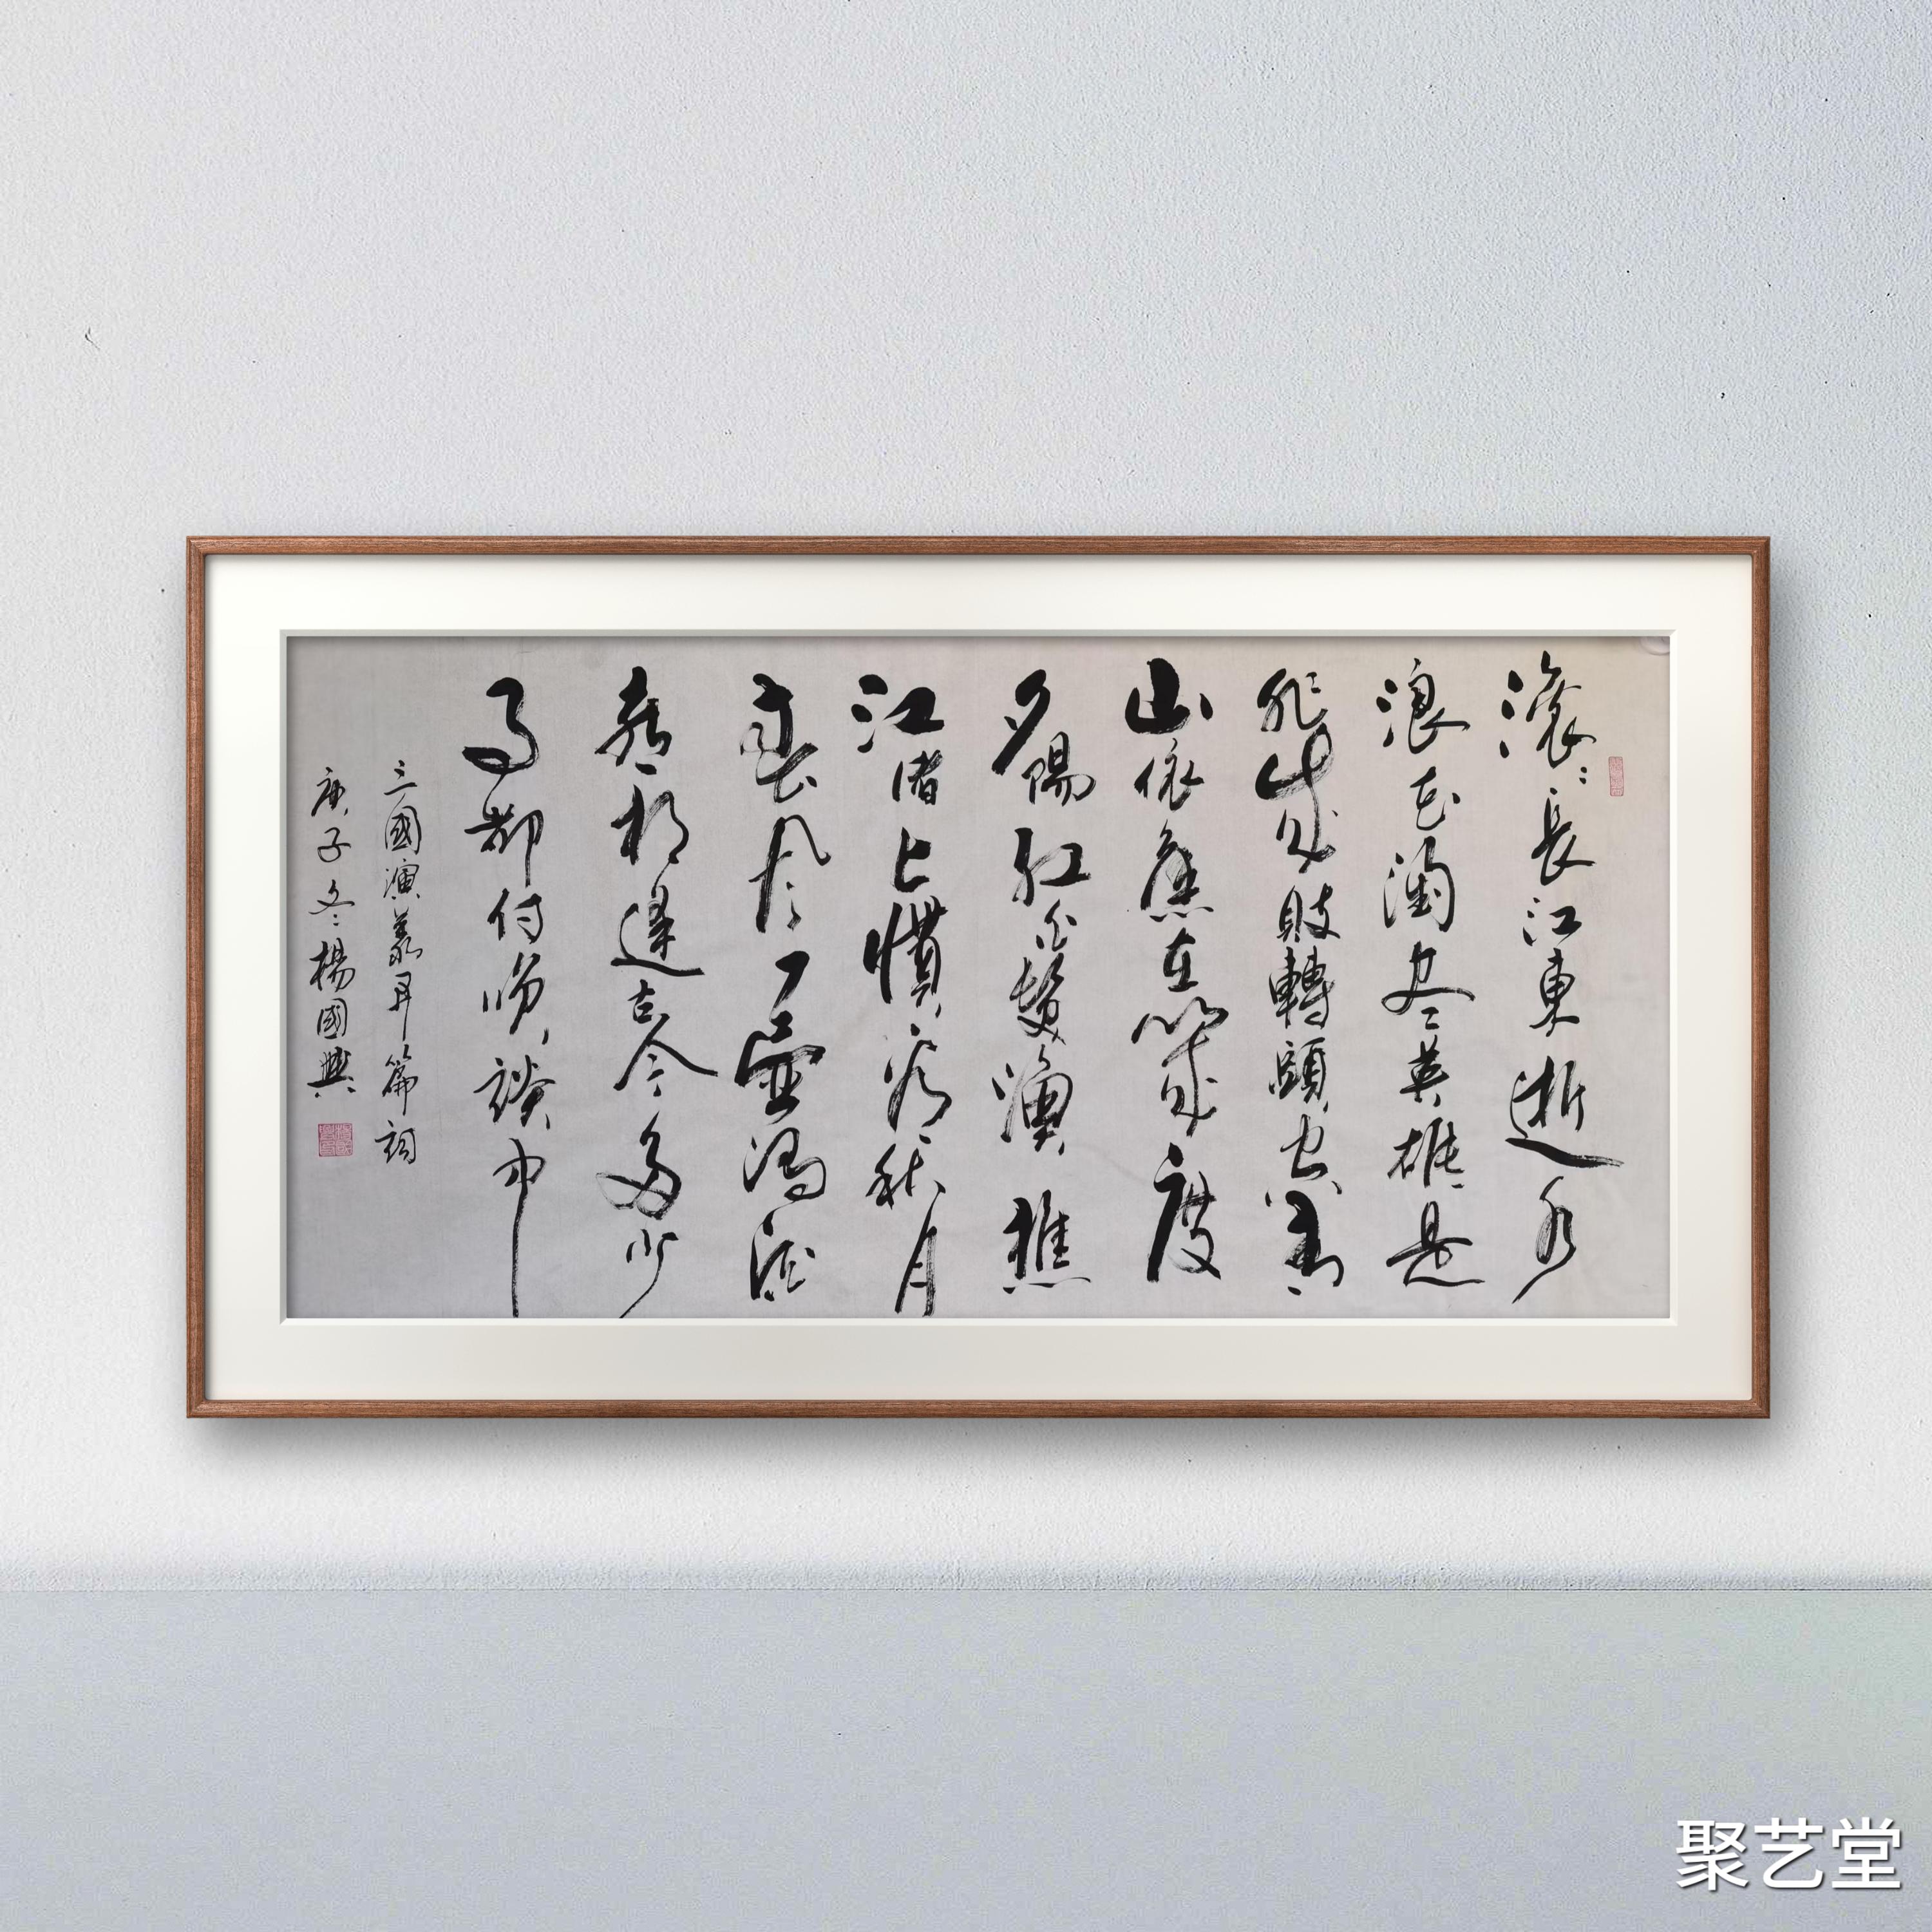 滚〻長江東逝水
浪花淘尽英雄是
非成敗轉頭空青
山依舊在幾度
夕陽紅白髮漁樵
江渚上慣看秋月
春風一壺濁酒
喜相逢古今多少
事都付笑談中
三國演義開篇詞
庚子冬楊國興
聚艺堂